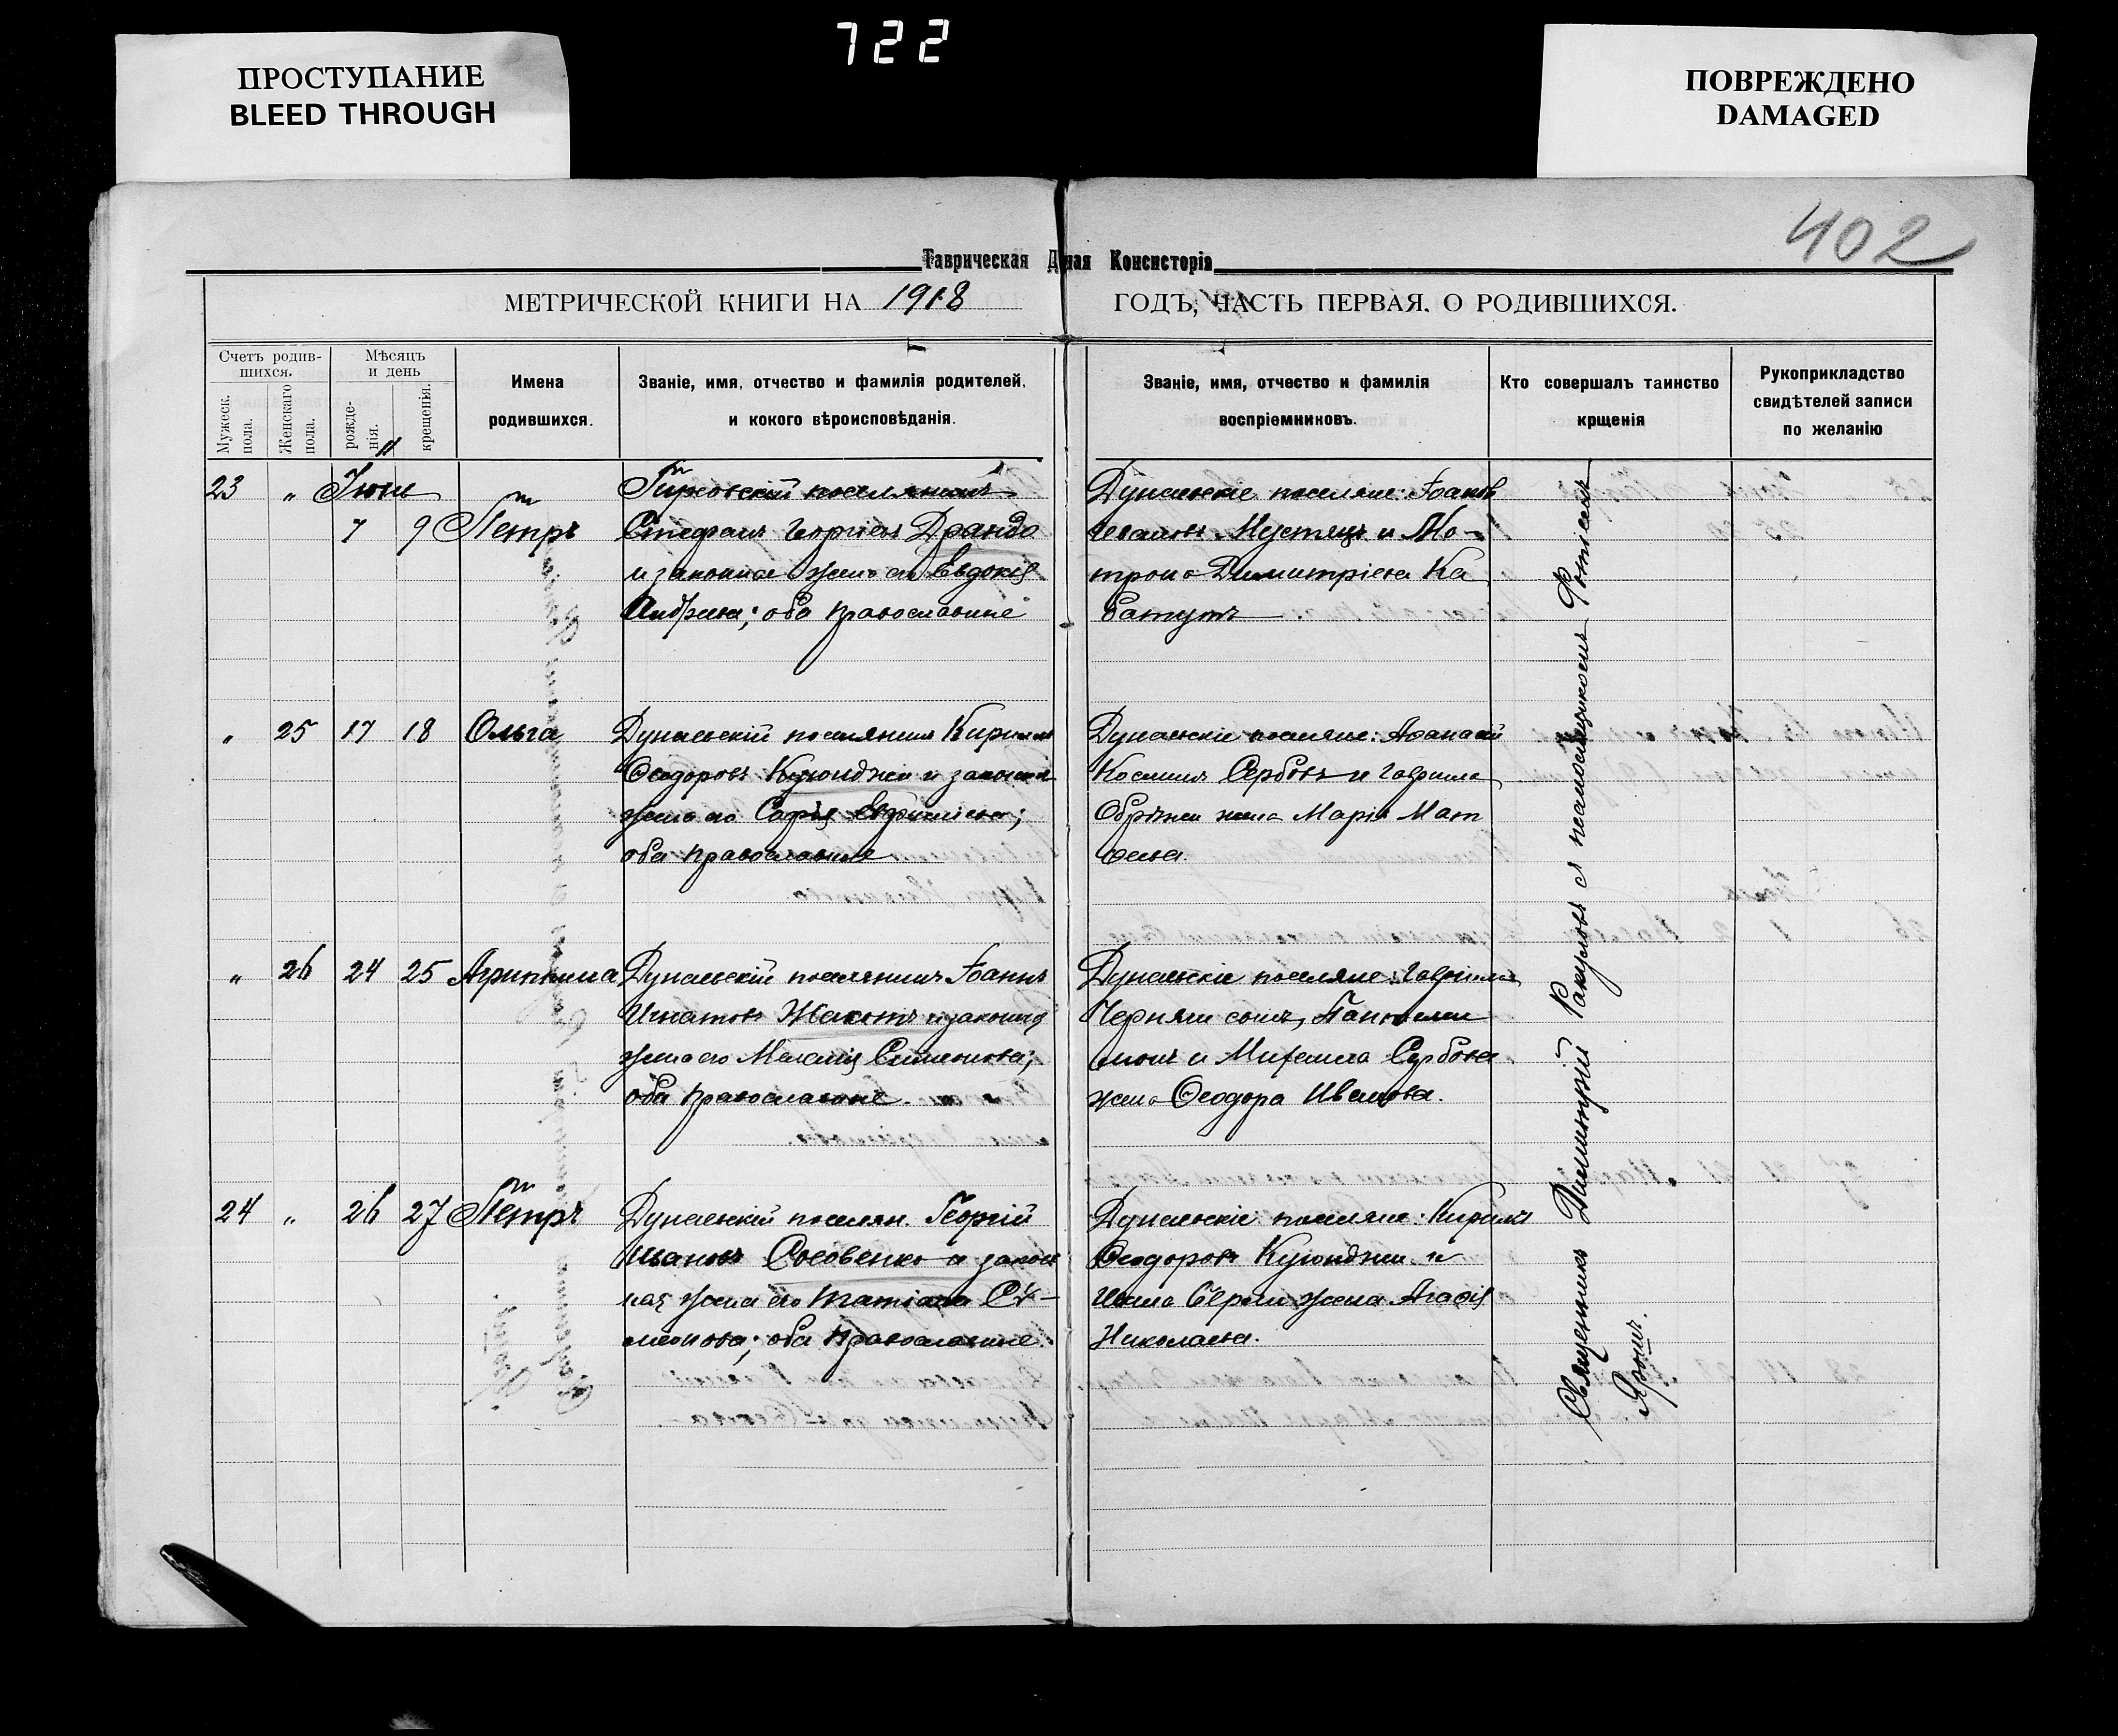 722
ПРОСТУПАНИЕ
BLEED THROUGH
ПОВРЕЖДЕНО
DAMAGED
402
Таврическая Д ная Консисторія
МЕТРИЧЕСКОЙ КНИГИ НА 1918 ГОДЪ, ЧАСТЬ ПЕРВАЯ, О РОДИВШИХСЯ.
Счетъ родив-
шихся.
Мужеск. пола.
Женскаго пола.
Мѣсяцъ
и день
рожде-
нія.
крещенія.
Имена
родившихся.
Званіе, имя, отчество и фамилія родителей,
и кокого вѣроисповѣданія.
Званіе, имя, отчество и фамилія
воспріемниковъ.
Кто совершалъ таинство
крщенія
Рукоприкладство
свидѣтелей записи
по желанію
23 " Іюнь
7 9 Петръ
поселянинъ
Стефанъ Драндо
и законная жена его Евдокія
Андреева; оба православные
Дунаевскіе поселяне: Іоаннъ
Ивановъ Мустяцъ и Мо-
трона Димитріева Ка
батутъ
" 25 17 18 Ольга
Дунаевскій поселянинъ Кириллъ
Ѳеодоровъ Куюнджи и законная
жена его Софія
оба православные
Дунаевскіе поселяне: Аѳанасій
Косминъ Сербовъ и Гавріила
жена Марія Мат
ѳеева.
" 26 24 25 Агрипина
Дунаевскій поселянинъ Іоаннъ
Игнатовъ и законная
жена его Меланія Симеонова;
оба православные.
Дунаевскіе поселяне: Гавріила
Черняги сынъ, Пантелеи
монъ и Михаила Сербова
жена Ѳеодора Иванова.
24 " 26 27 Петръ
Дунаевскій поселян. Георгій
Ивановъ и закон
ная жена его Татіана Сѵ-
меонова; оба православные.
Дунаевскіе поселяне: Кириллъ
Ѳеодоровъ Куюнджи и
Ивана жена Агаѳія
Николаева.
Священникъ Димитрій Ракуловъ съ псаломщикомъ